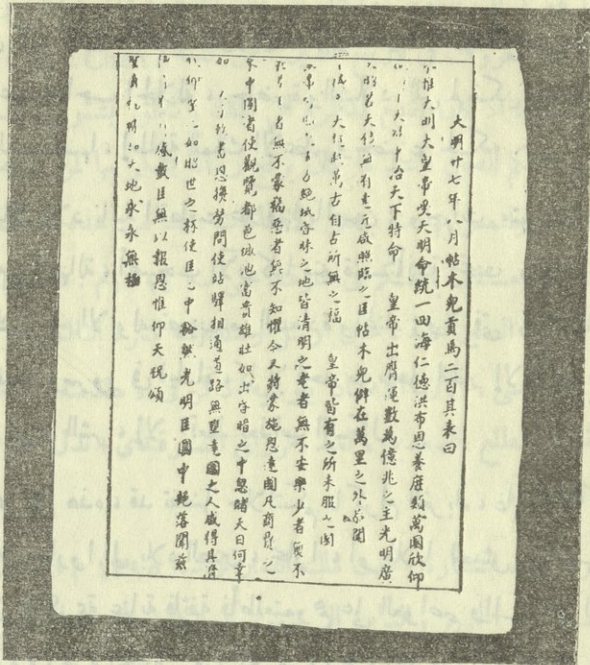 大明廿七年八月帖木兒貢馬二百其表曰
惟大明大皇帝受天明命統一四海仁德洪布恩養庶類萬國欣仰
天欲平治天下特命 皇帝出膺運數為億兆之主光明廣
昭若天鏡無有遠近咸照臨之臣帖木兒僻在萬里之外恭聞
大 萬古自古所無之福 皇帝皆有之所未服之国
絕域昏昧之地皆清明之老者無不安樂少者無不
者無不蒙福惡者無不知懼今又特蒙施恩遠國凡商賈之
來中國者使觀覽都邑城池富貴雄壯如出昏暗之中忽睹天日何幸
如 敕書恩撫勞問使站驛相通道路無壅遠國之人咸得其濟
仰聖 如照世之杯使臣心中豁然光明臣國中部落聞茲
感戴臣無以報恩惟仰天祝頌
聖壽 如天地永永無極